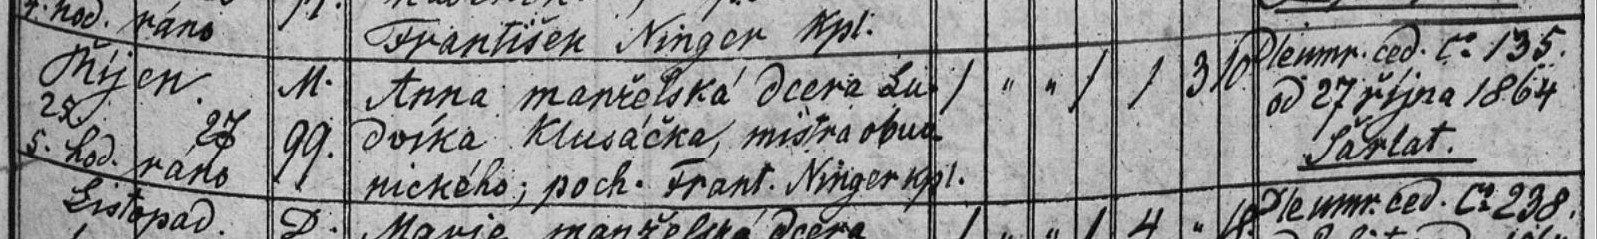 4. hod. ráno
František Ninger Kpl.
Říjen. M. Anna manželská dcera Lu- / " " / 1 3 10 Dle umr. ced. Co 135.
25. 27 99. dvíka Klusáčka, mistra obuv od 27 října 1864
5. hod. ráno nického; poch. Frant. Ninger kpl. Šarlat.
Listopad. D. Marie manželská dcera / " " / 4 " 18. Dle umr. ced. Co 238.